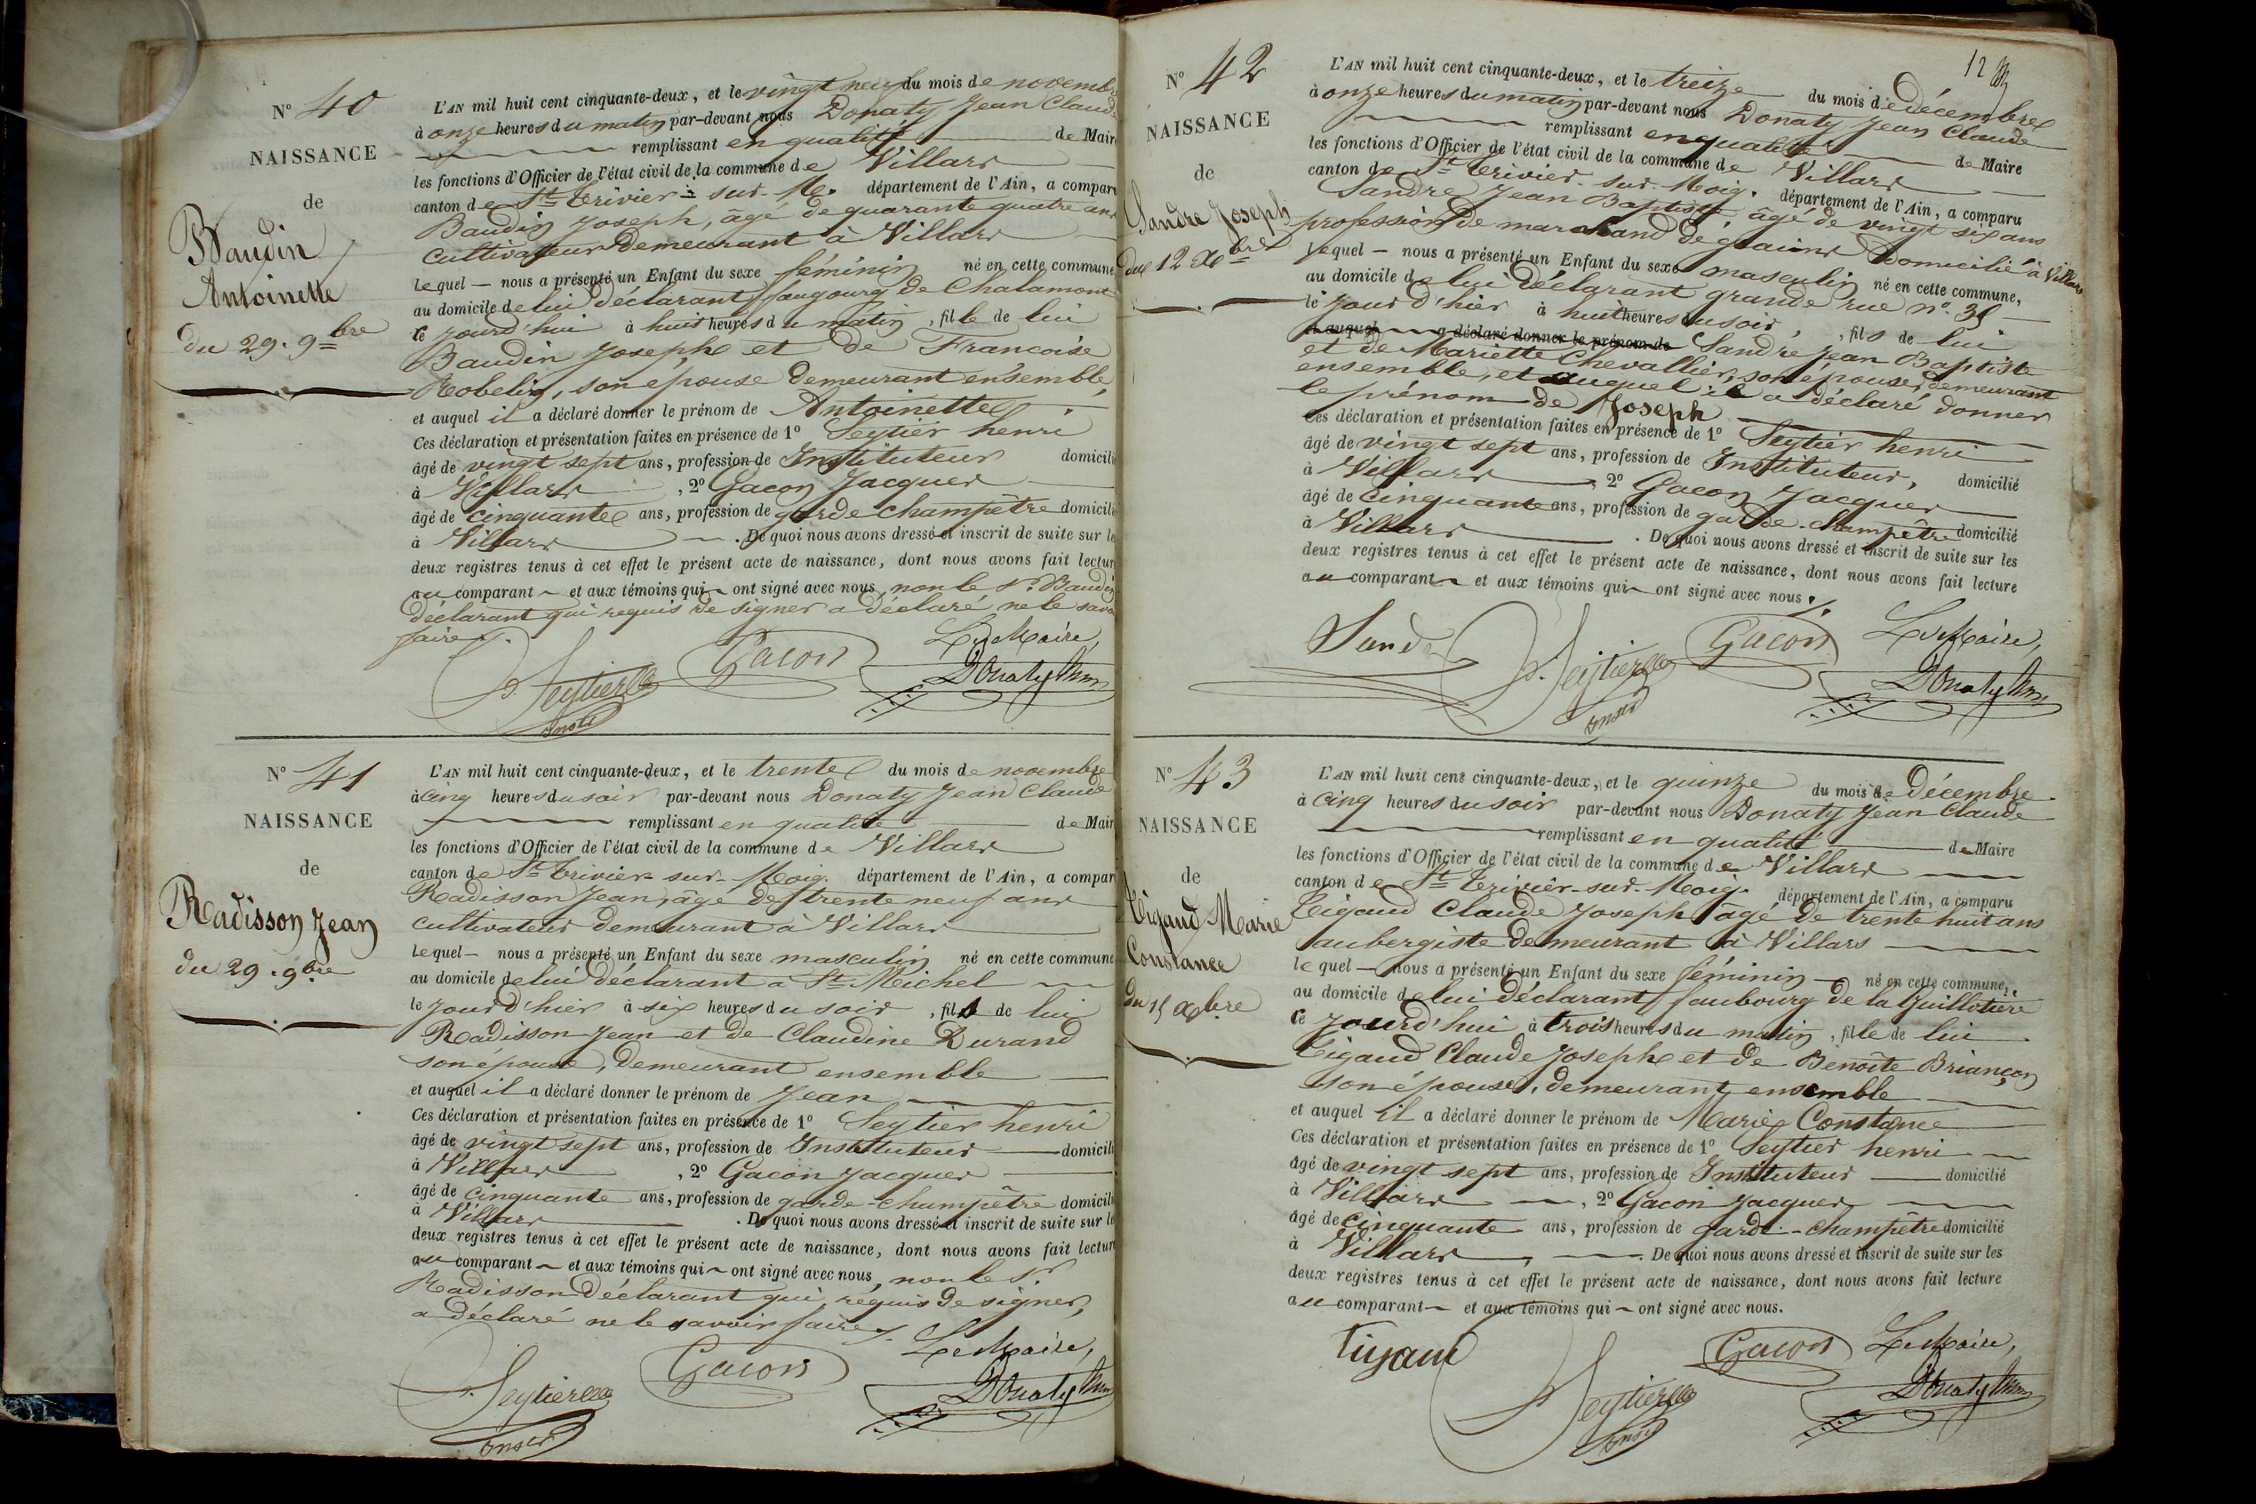 N° 40
NAISSANCE
de
Baudin
Antoinette
du 29. 9bre
L'AN mil huit cent cinquante-deux, et le vingt neuf du mois de novembre
à onze heures du matin par-devant nous Donaty Jean Claude
remplissant en qualité de Maire
les fonctions d'Officier de l'état civil de la commune de Villars
canton de St Trivier-sur-M. département de l'Ain, a comparu
Baudin Joseph, âgé de quarante quatre ans
cultivateur demeurant à Villars
lequel — nous a présenté un Enfant du sexe féminin né en cette commune
au domicile de lui déclarant faugourg de Chalamont
ce jourd'hui à huit heures du matin, fille de lui
Baudin Joseph et de Françoise
Robelin, son épouse demeurant ensemble,
et auquel il a déclaré donner le prénom de Antoinette.
Ces déclaration et présentation faites en présence de 1° Seytier henri
âgé de vingt sept ans, profession de Instituteur domicilié
à Villars, 2° Gacon Jacques
âgé de cinquante ans, profession de garde champêtre domicilié
à Villars. De quoi nous avons dressé et inscrit de suite sur les
deux registres tenus à cet effet le présent acte de naissance, dont nous avons fait lecture
au comparant et aux témoins qui ont signé avec nous, non le Sr. Baudin
déclarant qui requis de signer a déclaré ne le savoir
faire.
Seytier
Gacon
Le Maire,
Donaty
N° 41
NAISSANCE
de
Radisson Jean
du 29. 9bre
L'AN mil huit cent cinquante-deux, et le trente du mois de novembre
à cinq heures du soir par-devant nous Donaty Jean Claude
remplissant en qualité de Maire
les fonctions d'Officier de l'état civil de la commune de Villars
canton de St Trivier-sur-Moig. département de l'Ain, a comparu
Radisson Jean, âgé de trente neuf ans
cultivateur demeurant à Villars
lequel — nous a présenté un Enfant du sexe masculin né en cette commune
au domicile de lui déclarant à St Michel
le jour d'hier à six heures du soir, fils de lui
Radisson Jean et de Claudine Durand
son épouse, demeurant ensemble
et auquel il a déclaré donner le prénom de Jean
Ces déclaration et présentation faites en présence de 1° Seytier henri
âgé de vingt sept ans, profession de Instituteur domicilié
à Villars, 2° Gacon Jacques
âgé de cinquante ans, profession de garde-champêtre domicilié
à Villars. De quoi nous avons dressé et inscrit de suite sur les
deux registres tenus à cet effet le présent acte de naissance, dont nous avons fait lecture
au comparant et aux témoins qui ont signé avec nous, non le Sr.
Radisson déclarant qui, requis de signer,
a déclaré ne le savoir faire.
Seytier
Gacon
Le Maire,
Donaty
12
N° 42
NAISSANCE
de
Sandre Joseph
du 12 Xbre
L'AN mil huit cent cinquante-deux, et le treize du mois de décembre
à onze heures du matin par-devant nous Donaty Jean Claude
remplissant en qualité de Maire
les fonctions d'Officier de l'état civil de la commune de Villars
canton de St Trivier-sur-Moig. département de l'Ain, a comparu
Sandre Jean Baptiste, âgé de vingt six ans
profession de marchand de grains domicilié à Villars
lequel — nous a présenté un Enfant du sexe masculin né en cette commune,
au domicile de lui déclarant grande rue n°. 35
le jour d'hier à huit heures du soir, fils de lui
et auquel a déclaré donner le prénom de Sandre Jean Baptiste
et de Mariette Chevallier, son épouse, demeurant
ensemble, et auquel il a déclaré donner
le prénom de Joseph
Ces déclaration et présentation faites en présence de 1° Seytier henri
âgé de vingt sept ans, profession de Instituteur, domicilié
à Villars, 2° Gacon Jacques
âgé de cinquante ans, profession de garde-champêtre domicilié
à Villars. De quoi nous avons dressé et inscrit de suite sur les
deux registres tenus à cet effet le présent acte de naissance, dont nous avons fait lecture
au comparant et aux témoins qui ont signé avec nous.
Sandre
Seytier
Gacon
Le Maire,
Donaty
N° 43
NAISSANCE
de
Tigaud Marie
Constance
du 15 Xbre
L'AN mil huit cent cinquante-deux, et le quinze du mois de décembre
à cinq heures du soir par-devant nous Donaty Jean Claude
remplissant en qualité de Maire
les fonctions d'Officier de l'état civil de la commune de Villars
canton de St Trivier-sur-Moig. département de l'Ain, a comparu
Tigaud Claude Joseph âgé de trente huit ans
aubergiste demeurant à Villars
lequel — nous a présenté un Enfant du sexe féminin né en cette commune,
au domicile de lui déclarant faubourg de la Guillotière
ce jourd'hui à trois heures du matin, fille de lui
Tigaud Claude Joseph et de Benoîte Briançon
son épouse, demeurant ensemble
et auquel il a déclaré donner le prénom de Marie Constance
Ces déclaration et présentation faites en présence de 1° Seytier henri
âgé de vingt sept ans, profession de Instituteur domicilié
à Villars, 2° Gacon Jacques
âgé de cinquante ans, profession de garde-champêtre domicilié
à Villars. De quoi nous avons dressé et inscrit de suite sur les
deux registres tenus à cet effet le présent acte de naissance, dont nous avons fait lecture
au comparant et aux témoins qui ont signé avec nous.
Tigaud
Seytier
Gacon
Le Maire,
Donaty